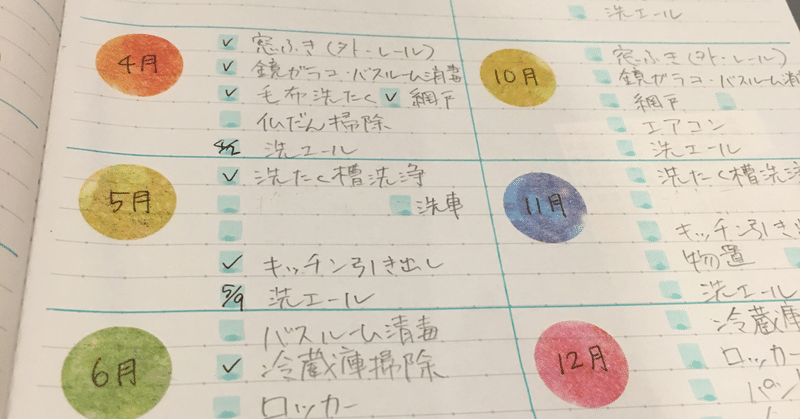 洗エール
4月
✓ 窓ふき(外・レール)
✓ 鏡ガラコ・バスルーム消毒
✓ 毛布洗たく ✓ 網戸
仏だん掃除
4/2 洗エール
5月
✓ 洗たく槽洗浄
洗車
✓ キッチン引き出し
5/9 洗エール
6月
バスルーム消毒
✓ 冷蔵庫掃除
ロッカー
10月
窓ふき(外・レール)
鏡ガラコ・バスルーム消
網戸
エアコン
洗エール
11月
洗たく槽洗
キッチン引き
物置
洗エール
12月
冷蔵庫
ロッカー